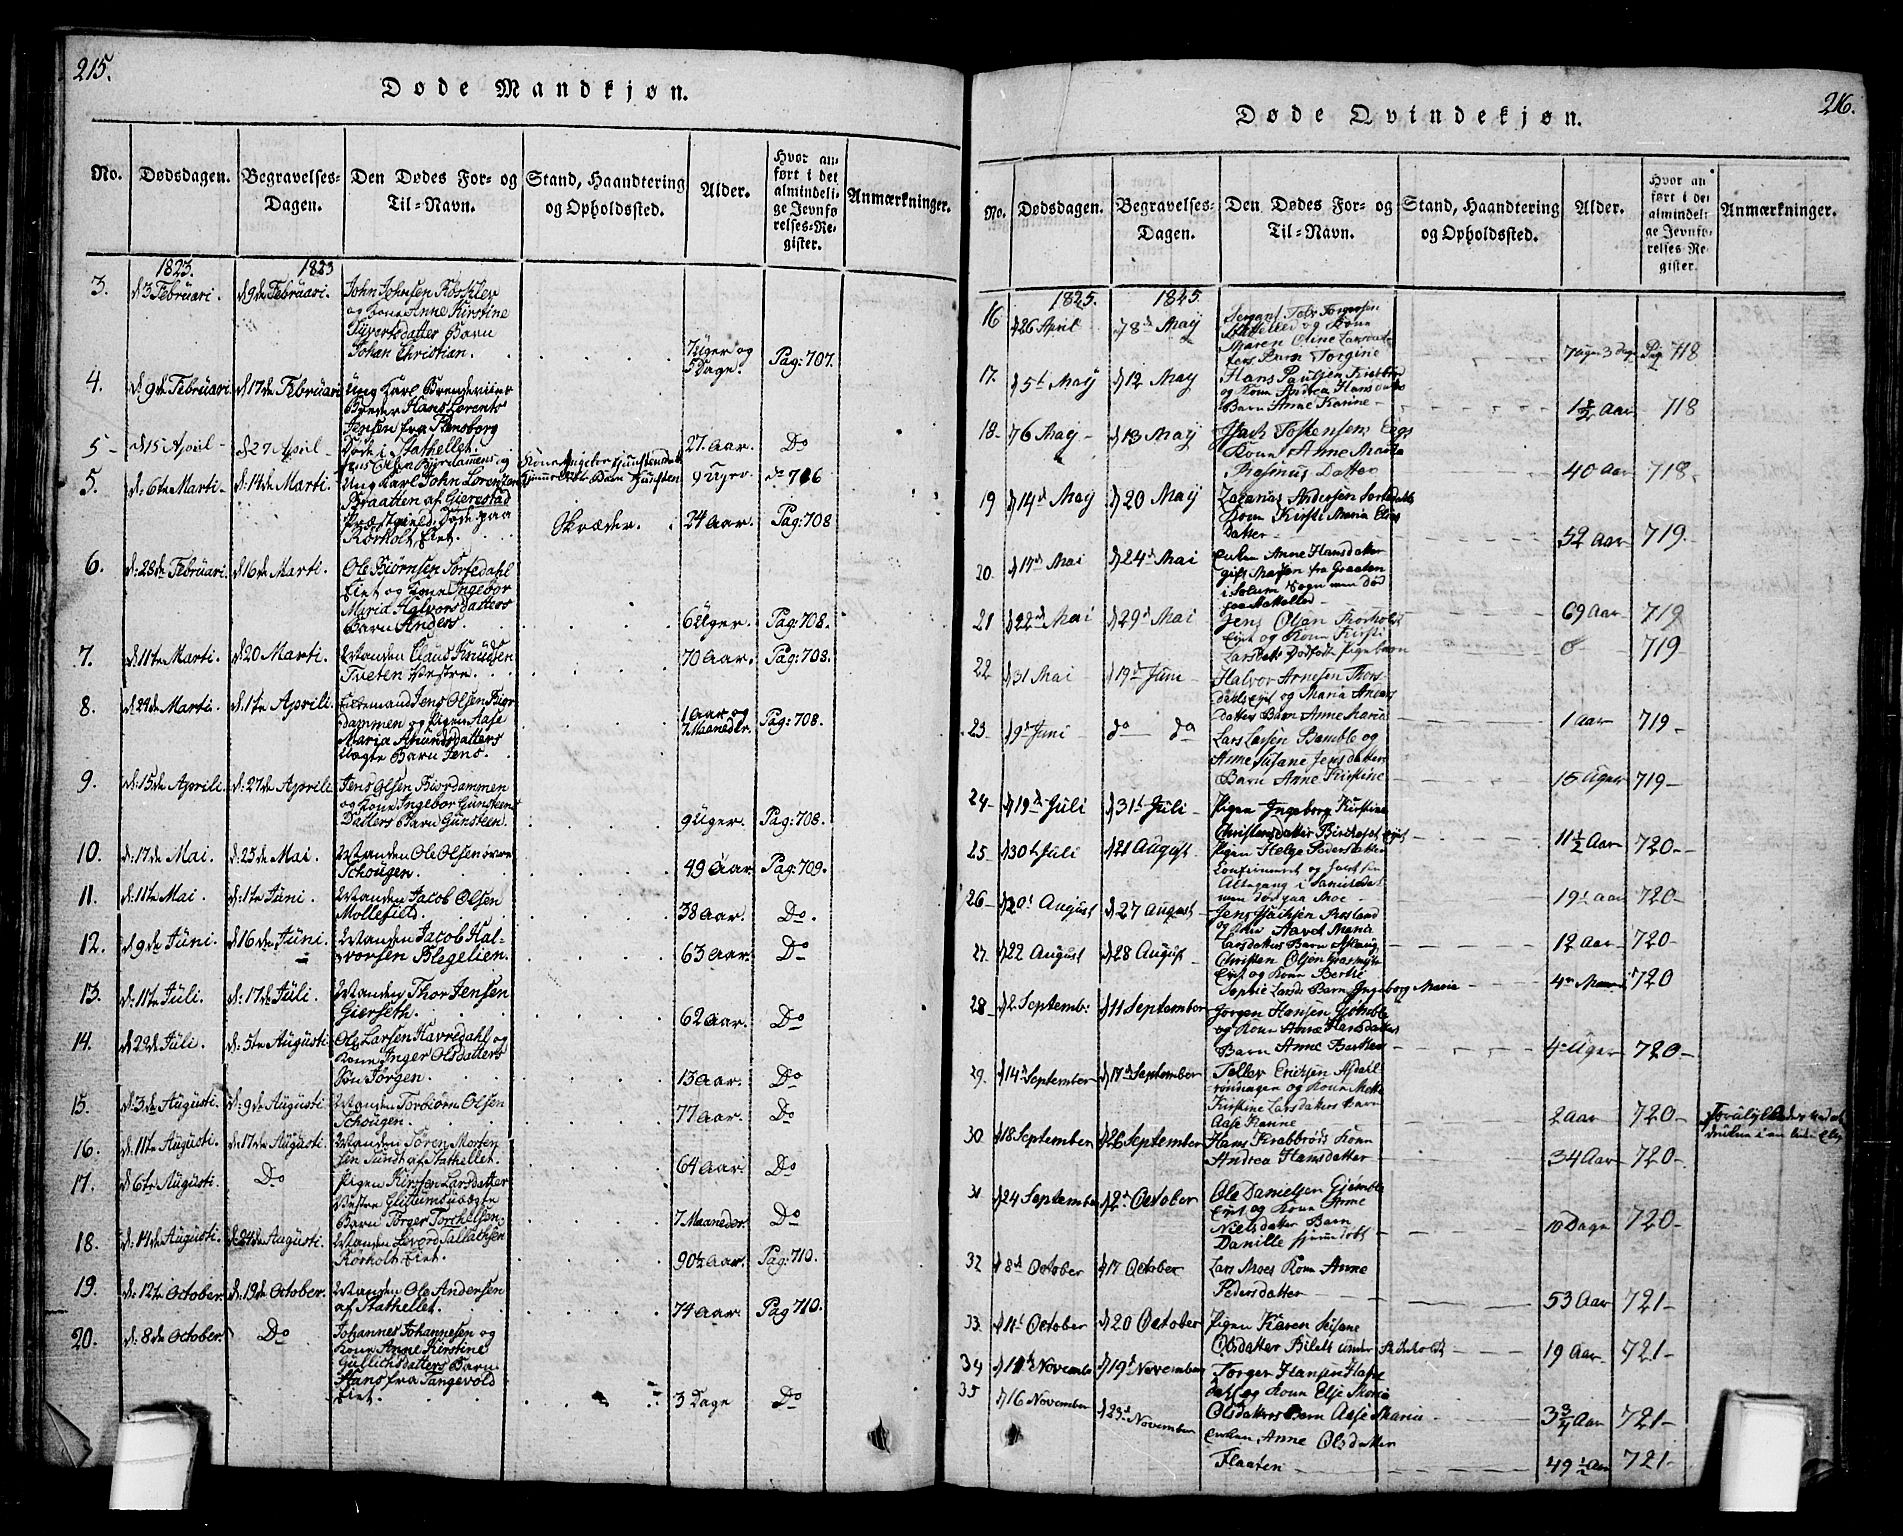 215.
Døde Mandkjøn.
No. Dødsdagen. Begravelses-Dagen. Den Dødes For- og Til-Navn. Stand, Haandtering og Opholdssted. Alder. Hvor anført i det almindelige Jevnførelses-Register. Anmærkninger.
1823. 1823
3. d 3 Februari. d 9de Februari. John Johnsen
og Kone Anne Kirstine
Sivertsdatter Barn
Johan Christian. 7 Uger og 5 Dage. Pag: 707.
4. d. 9de Februari d 17de Februari Ung Karl
Hans Lorents
Jensen fra Flensborg
Døde i Stathellet. 27. Aar. Do
5 - d 15 April - d 27 April - Jens Olsen Biørdammens og 9 Uger. 716
5. d: 6te Marti - d: 14de Marti. Ung Karl John Lorentsen
Braatten af Gierestad
Præstgield. Døde paa
Rørholt Eiet. Skræder. 24 Aar. Pag: 708
6. d: 28de Februari. d 16de Marti. Ole Biørnsen Torsedahl
Eiet og Kone Ingebor
Maria Halvorsdatters
Barn Anders. 6 Uger. Pag: 708.
7. d 11te Marti d 20 Marti. Manden Claus Knudsen
Tveten Vestre. 70 Aar. Pag: 708.
8. d: 24de Marti. d: 1te Aprili. Eiermand Jens Olsen Biør-
dammen og Pigen Aase
Maria Amundsdatters
Uægte Barn Jens. 1 Aar og 7 Maaneder. Pag: 708.
9. d: 15de Aprili. d: 27de Aprili Jens Olsen Biørdammen
og Kone Ingebor Gunsteens
Datters Barn Gunsteen. 9 Uger. Pag: 708.
10. d: 17de Mai. d: 25de Mai. Manden Ole Olsen øvre
Schougen. 49 Aar Pag: 709.
11. d 11te Mai. d: 1te Juni. Manden Jacob Olsen
Mollefield. 38 Aar. Do.
12. d 9de Juni. d 16de Juni. Manden Jacob Hal-
vorsen Blegelien. 63 Aar. Do
13. d: 11te Juli. d: 17de Juli. Manden Thor Jensen
Gierseth. 62 Aar. Do
14. d 29de Juli. d: 5te Augusti Ole Larsen Havredahl og
Kone Inger Olsdatters
Søn Jørgen. 13 Aar. Do
15. d: 3de Augusti. d: 9de Augusti. Manden Torbiørn Olsen
Schougen. 77 Aar. Do
16. d: 11te Augusti. d: 17de Augusti. Manden Søren Morten
sen Sundt af Stathellet. 64 Aar. Do
17. d 6te Augusti. Do Pigen Kirsten Larsdatter
Vestre Glittums uægte
Barn Torger Torchelsen. 7 Maaneder. Do
18. d: 14de Augusti. d: 24de Augusti. Manden Sallathsen
Rørholt Eiet. 90½ Aar. Pag: 710.
19. d: 12te October. d: 19de October. Manden Ole Andersen
af Stathellet. 74 Aar. Pag 710.
20. d. 8de October. Do Johannes Johannesen og
Kone Anne Kirstine
Gullichsdatters Barn
Hans fra Tangevold
Eiet. 3 Dage Do
216.
Døde Qvindekjøn.
No. Dødsdagen. Begravelses-Dagen. Den Dødes For- og Til-Navn. Stand, Haandtering og Opholdssted. Alder. Hvor anført i det almindelige Jevnførelses-Register. Anmærkninger.
1825. 1825.
16 d 26 April d 8de Maÿ
Stathelle og Kone
Maren Oline Larsdat-
ters Barn Torgine 7 Uger 3 Dage Pag 718
17. d 5t Maÿ d 12 Maÿ Hans Paulsen
og Kone Andrea Hansdatters
Barn Anne Karine - 1½ Aar 718
18 - d 6 Maÿ - d 13 Maÿ
Kone Anne Maria
Rasmus Datter 40 Aar 718 -
19 d 14d Maÿ d 20 Maÿ Zacarias Andersen
Kone Kirsti Maria
Datter - 52 Aar 719.
20. d 17d Mai d 24d Mai Enken Anne Hansdatter
fra Graaten
i Solum Sogn men død
69 Aar 719
21 d 22d Mai d 29d Mai Jens Olsen Rørholt
Eiet og Kone Kirsti
Larsdatt. Dødfødt Pigebarn 0 719 -
22 d 31 Mai d 19d Juni - Halvor Arnesen Thors-
dahls Eiet og Maria
Datters Barn Anne Maria 1 Aar 719.
23. d 9d Juni do do Lars Larsen Bamble og
Anne Susane Jensdatters
Barn Anne Kirstine 15 Uger 719 -
24 - d 19d Juli d 31t Juli - Pigen Ingeborg Kirstine
Christensdatter 11½ Aar 720 -
25 d 30t Juli d 21 August. Pigen Helge Pedersdatter
Confirmeret
19½ Aar 720
26 - d 20d August d 27 August Jens Isachsen Rosland
Larsdatters Barn Aslaug 12 Aar 720 -
27. d 22 August d 28 August - Christen Olsen
Eiet og Kone Berthe
Sophie Larsds Barn Ingeborg Maria 4 720
28 - d 2 Septembr: d 11 September Jørgen Hansen Giømle
og Kone Anne Hansdatters
Barn Anne Berthea 4 Uger 720 -
29. d 14d September d 17d September Tellev Ericksen Asdahl
og Kone Mette
Kirstine Larsdatters Barn
Aase Hanne 2 Aar 720 -
30 d 18 September d 26 September Hans Krabberøds Kone
Andrea Hansdatter 34 Aar 720 -
31 d 24 September d 2d October Ole Danielsen Giømle
Eiet og Kone Anne
Nielsdatter Barn
Danille hjemmedøbt 10 Dage 720 -
32 d 8d October d 17 October Lars Moes Kone Anne
Pedersdatter 53 Aar 721 -
33. d 11t October d 20 October Pigen Karen Susane
Olsdatter under 19 Aar 721 -
34 d 11t November d 19d November Torger Hansen
og Kone Else Maria
Olsdatters Barn Aase Maria 3¾ Aar 721 -
35 d 16 November d 23d November Enken Anne Olsdatter
Flaaten 49½ Aar 721 -